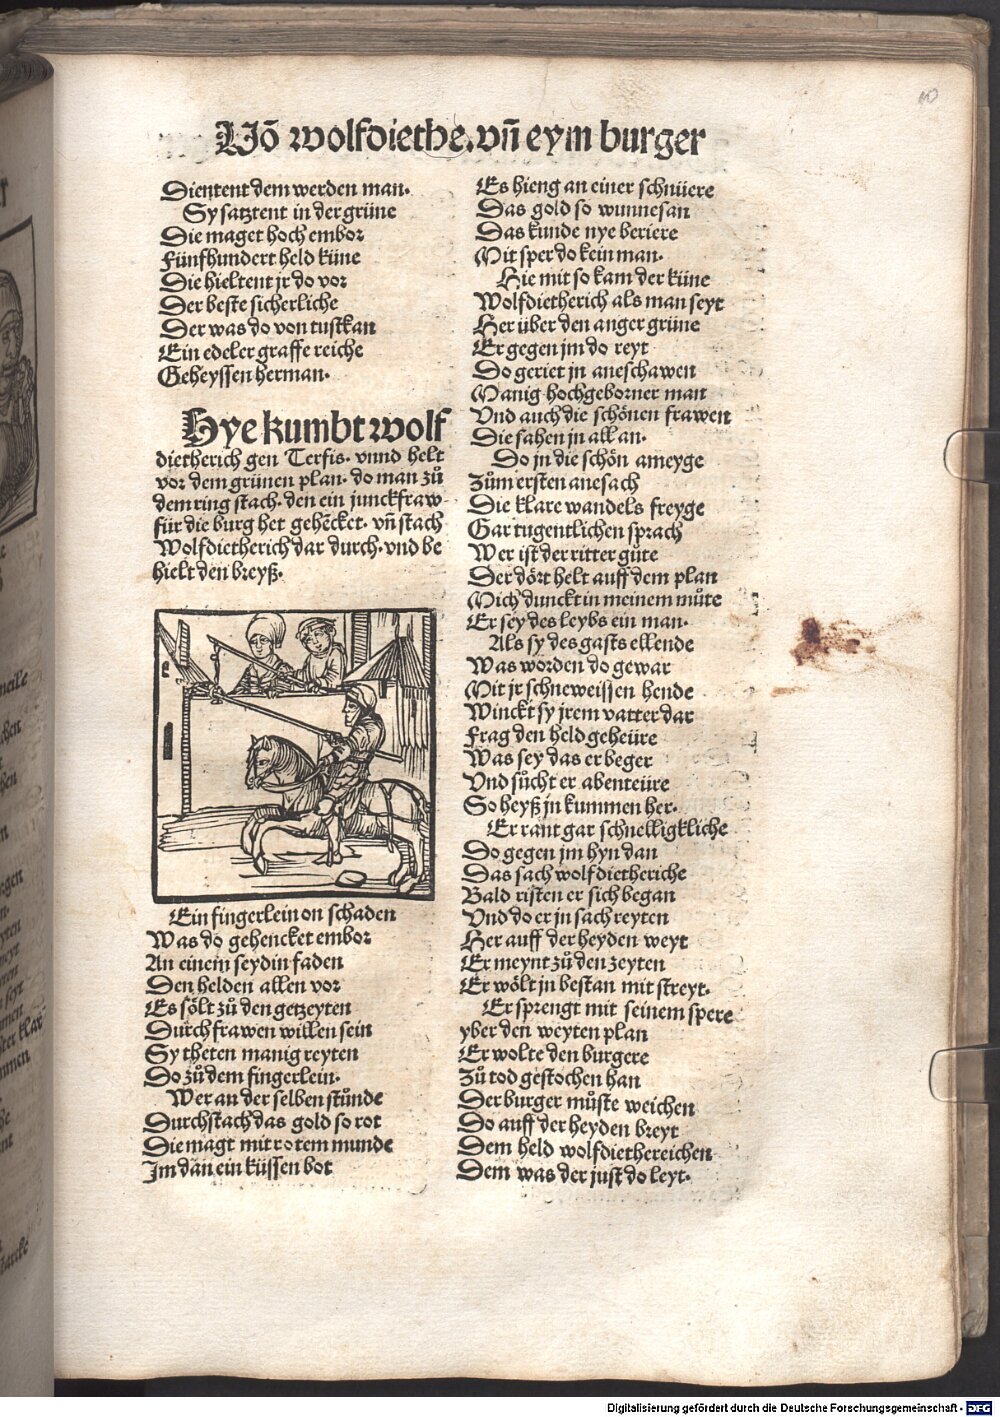 Võ wolfdiethe. vñ eym burger
Dientent dem werden man.
Sy satztent in der grüne
Die maget hoch embor
Fünfhundert held küne
Die hieltent jr do vor
Der beste sicherliche
Der was do von tustkan
Ein edeler graffe reiche
Geheyssen herman.
Hye kumbt wolf
dietherich gen Terfis. vnnd helt
vor dem grünen plan. do man zů
dem ring stach. den ein junckfraw
für die burg het gehēcket. vñ stach
Wolfdietherich dar durch. vnd be
hielt den breyß.
Ein fingerlein on schaden
Was do gehencket embor
An einem seydin faden
Den helden allen vor
Es sölt zů den getzeyten
Durch frawen willen sein
Sy theten manig reyten
Do zů dem fingerlein.
Wer an der selben stůnde
Durchstach das gold so rot
Die magt mit rotem munde
Im dan ein küssen bot
Es hieng an einer schnüere
Das gold so wunnesan
Das kunde nye beriere
Mit sper do kein man.
Hie mit so kam der küne
Wolfdietherich als man seyt
Her über den anger grüne
Er gegen jm do reyt
Do geriet jn aneschawen
Manig hochgeborner man
Vnd auch die schönen frawen
Die sahen jn all an.
Do jn die schön ameyge
Zům ersten anesach
Die klare wandels freyge
Gar tugentlichen sprach
Wer ist der ritter gůte
Der dört helt auff dem plan
Mich dunckt in meinem můte
Er sey des leybs ein man.
Als sy des gasts ellende
Was worden do gewar
Mit jr schneweissen hende
Winckt sy jrem vatter dar
Frag den held geheüre
Was sey das er beger
Vnd sůcht er abenteüre
So heyß jn kummen her.
Er rant gar schnelligkliche
Do gegen jm hyn dan
Das sach wolfdietheriche
Bald risten er sich began
Vnd do er jn sach reyten
Her auff der heyden weyt
Er meynt zů den zeyten
Er wölt jn bestan mit streyt.
Er sprengt mit seinem spere
yber den weyten plan
Er wolte den burgere
Zů tod gestochen han
Der burger můste weichen
Do auff der heyden breyt
Dem held wolfdiethereichen
Dem was der just do leyt.
Digitalisierung gefördert durch die Deutsche Forschungsgemeinschaft - DFG